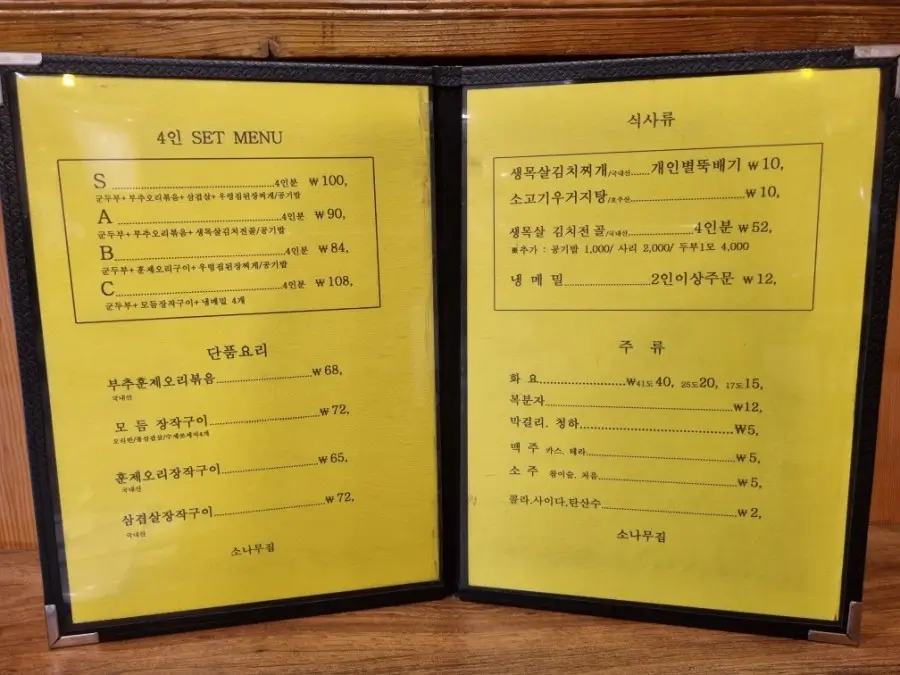 4인 SET MENU
S 4인분 ₩100,
군두부+ 부추오리볶음+ 삼겹살+ 우렁쌈된장찌개/공기밥
A 4인분 ₩90,
군두부+ 부추오리볶음+ 생목살김치전골/공기밥
B 4인분 ₩84,
군두부+ 훈제오리구이+ 우렁쌈된장찌개/공기밥
C 4인분 ₩108,
군두부+ 모듬장작구이+ 냉메밀 4개
단품요리
부추훈제오리볶음 ₩68,
국내산
모 듬 장작구이 ₩72,
훈제오리장작구이 ₩65,
국내산
삼겹살장작구이 ₩72,
국내산
소나무집
식사류
생목살김치찌개/국내산 개인별뚝배기 ₩10,
소고기우거지탕/호주산 ₩10,
생목살 김치전골/국내산 4인분 ₩52,
※추가 : 공기밥 1,000/ 사리 2,000/ 두부1모 4,000
냉 메 밀 2인이상주문 ₩12,
주 류
화 요 ₩41도40, 25도20, 17도15,
복분자 ₩12,
막걸리. 청하 ₩5,
맥 주 카스. 테라 ₩5,
소 주 참이슬. 처음 ₩5,
콜라.사이다.탄산수 ₩2,
소나무집